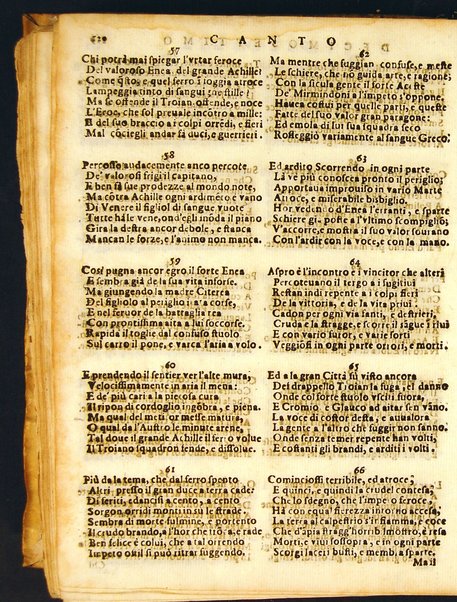 CANTO
57
Chi potrà mai spiegar l'vrtar feroce
Del valoroso Enea, del grande Achille?
Come questo, e quel ferro s'ioggia atroce
Lampeggia tinto di sangui stille!
Ma se offende il Troian, offende, e noce
L'Eroe, che sol preuale incôtro a mille:
E del suo braccio a i colpi orédi, e fieri
Mal cotegli andar sà duci, e guerrieri.
58
Percosso audacemente anco percote
De' valorosi frigi il capitano,
E ben sà sue prodezze al mondo note,
Ma côtra Achille ogni ardimêto è vano
Di Venere il figliol di sangue vuote
Tutte hà le vene, ond'egli môda il piano
Gira la destra ancor debole, e stanca
Mancan le forze, e l'animo non manca.
59
Così pugna ancor egro il forte Enea
E sembra già de la sua vita in forse.
Ma giungendo la madre Citerea
Del figliolo al periglio iv'a corse,
E nel feruor de la battaglia rea
Con prontissima aita a lui soccorse.
Rapida il togie dal confuso stuolo
Sul carro il pone, e varca l'aria a volo.
60
E prendendo il sentier ver l'alte mura,
Velocissimamente in aria il mena:
E de' più cari a la pietosa cura
Il ripon di cordoglio ingôbra, e piena.
Ma qual del mietitor messe matura,
O qual da l'Austro le minute arene,
Tal doue il grande Achille il ferro volue
Il Troiano squadron fende, e dissolue.
61
Più da la tema, che dal ferro spento
Altri presso il gran duce a terra cade:
Di feriti, e d'ancisi a cento, a cento
Sorgon orridi monti in su le strade.
Sembra di morte fulmine, e portento
Il crudo brando, a l'hor che irò, a e rade
Ben felice è colui, che a tal orrendo
Impeto ostil si può ritrar fuggendo.
62
Ma mentre che fuggian confuse, e meste
Le schiere, che nô guida arte, e ragione;
Con la sicula gente il forte Aceste
De' Mirmindoni a l'impeto s'oppone.
Hauea costui per quelle parti, e queste
Fatte del suo valor gran paragone:
Ed emola di sui sua squadra seco
Rosseggiò variamente al sangue Greco.
63
Ed ardito Scorrendo in ogni parte
Là vè più conoscea pronto il periglio,
Apportaua improuiso in vario Marte
Atroce, e miserabile bisbiglio.
Hor vedendo d'Enea l'erranti, e sparte
Schiere già poste a l'vltimo scompiglio,
V'accorre, e mostra il suo valor sourano
Con l'ardir con la voce, e con la mano.
64
Aspro è l'incontro e i vincitor che altieri
Percoteuano il tergo a i fugitiui
Restan indi repente a i colpi fieri
De la vittoria, e de la vita priui
Cadon per ogni via fanti, e destrieri,
Cruda è la stragge, e scorre il sâgue i riui
E con vario furor, e varie sorti
Veggionsi in ogni parte orrori, e morti.
65
Ed a la gran Città fù visto ancora
Del drappello Troian la fuga, e'l danno
Onde col forte stuolo vsciti fuora,
E Cromio e Glauco ad aitar sen vâno.
La voce di costor desta, e auualora
La gente a l'altro che fuggir non sanno.
Onde senza temer repente han volti,
E costanti gli brandi, e arditi i volti.
66
Cominciossi terribile, ed atroce,
E quinci, e quindi la crudel contesa,
Che lo sdegno, che l'impeto feroce,
Hà con equal fierezza intorno accesa,
La terra al calpestrio s'infiamma, e coce
Che d'aspra stragge horribil mostro, è resa
Morti, e viui sossopra, e in ogni parte
Scorgi laceri busti, e membra sparte.
Ma il